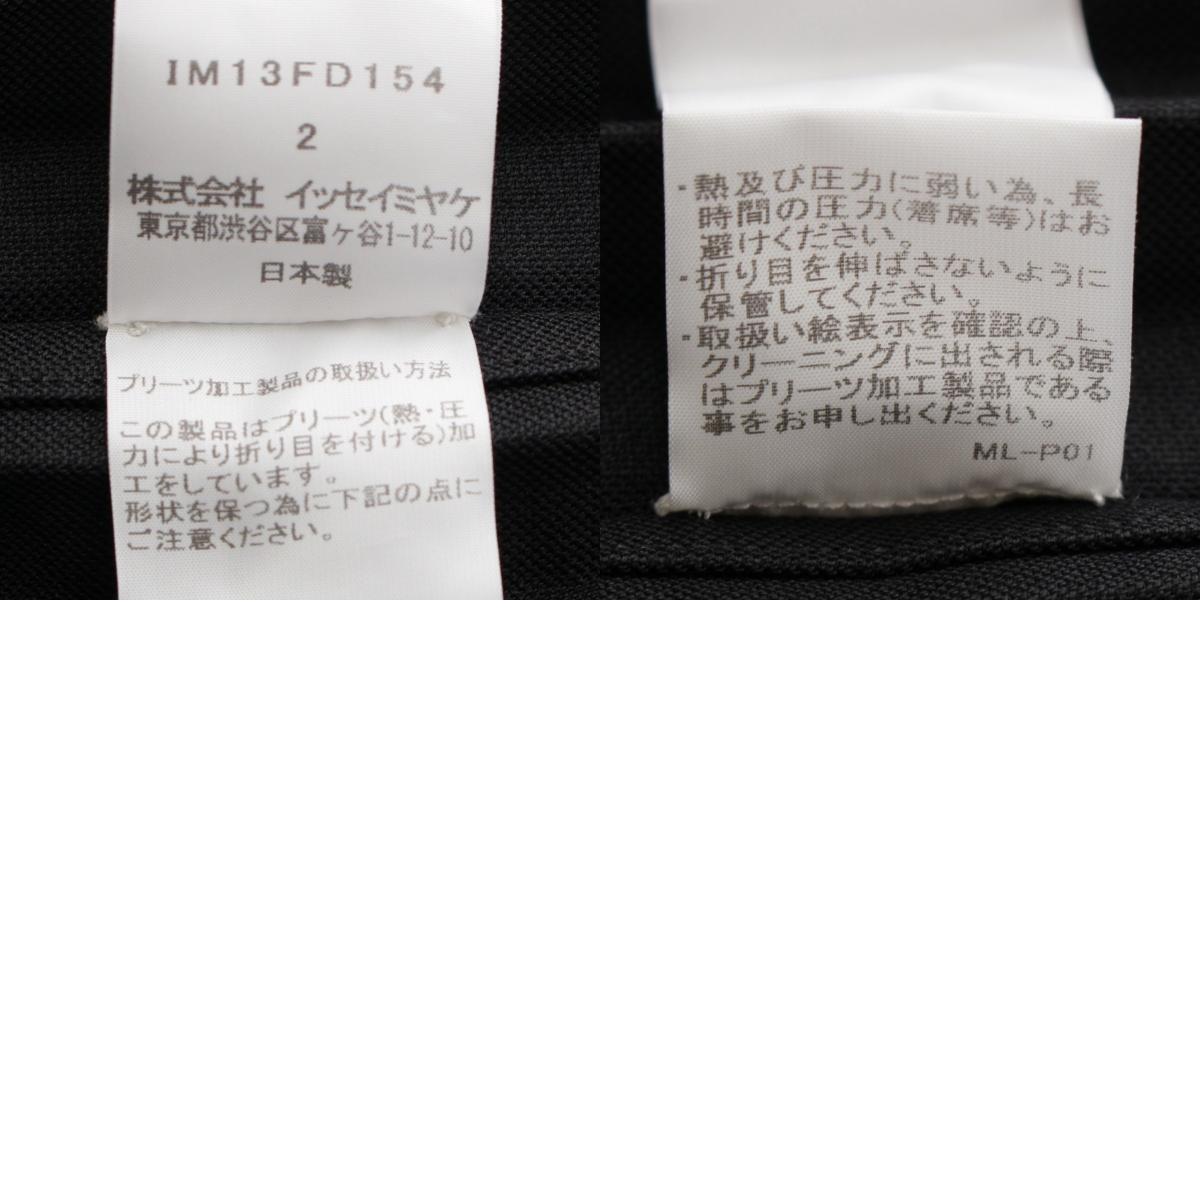 IM13FD154
2
株式会社 イッセイミヤケ
東京都渋谷区富ヶ谷1-12-10
日本製
プリーツ加工製品の取扱い方法
この製品はプリーツ(熱・圧
力により折り目を付ける)加
工をしています。
形状を保つ為に下記の点に
ご注意ください。
・熱及び圧力に弱い為、長
時間の圧力(着席等)はお
避けください。
・折り目を伸ばさないように
保管してください。
・取扱い絵表示を確認の上、
クリーニングに出される際
はプリーツ加工製品である
事をお申し出ください。
ML-P01